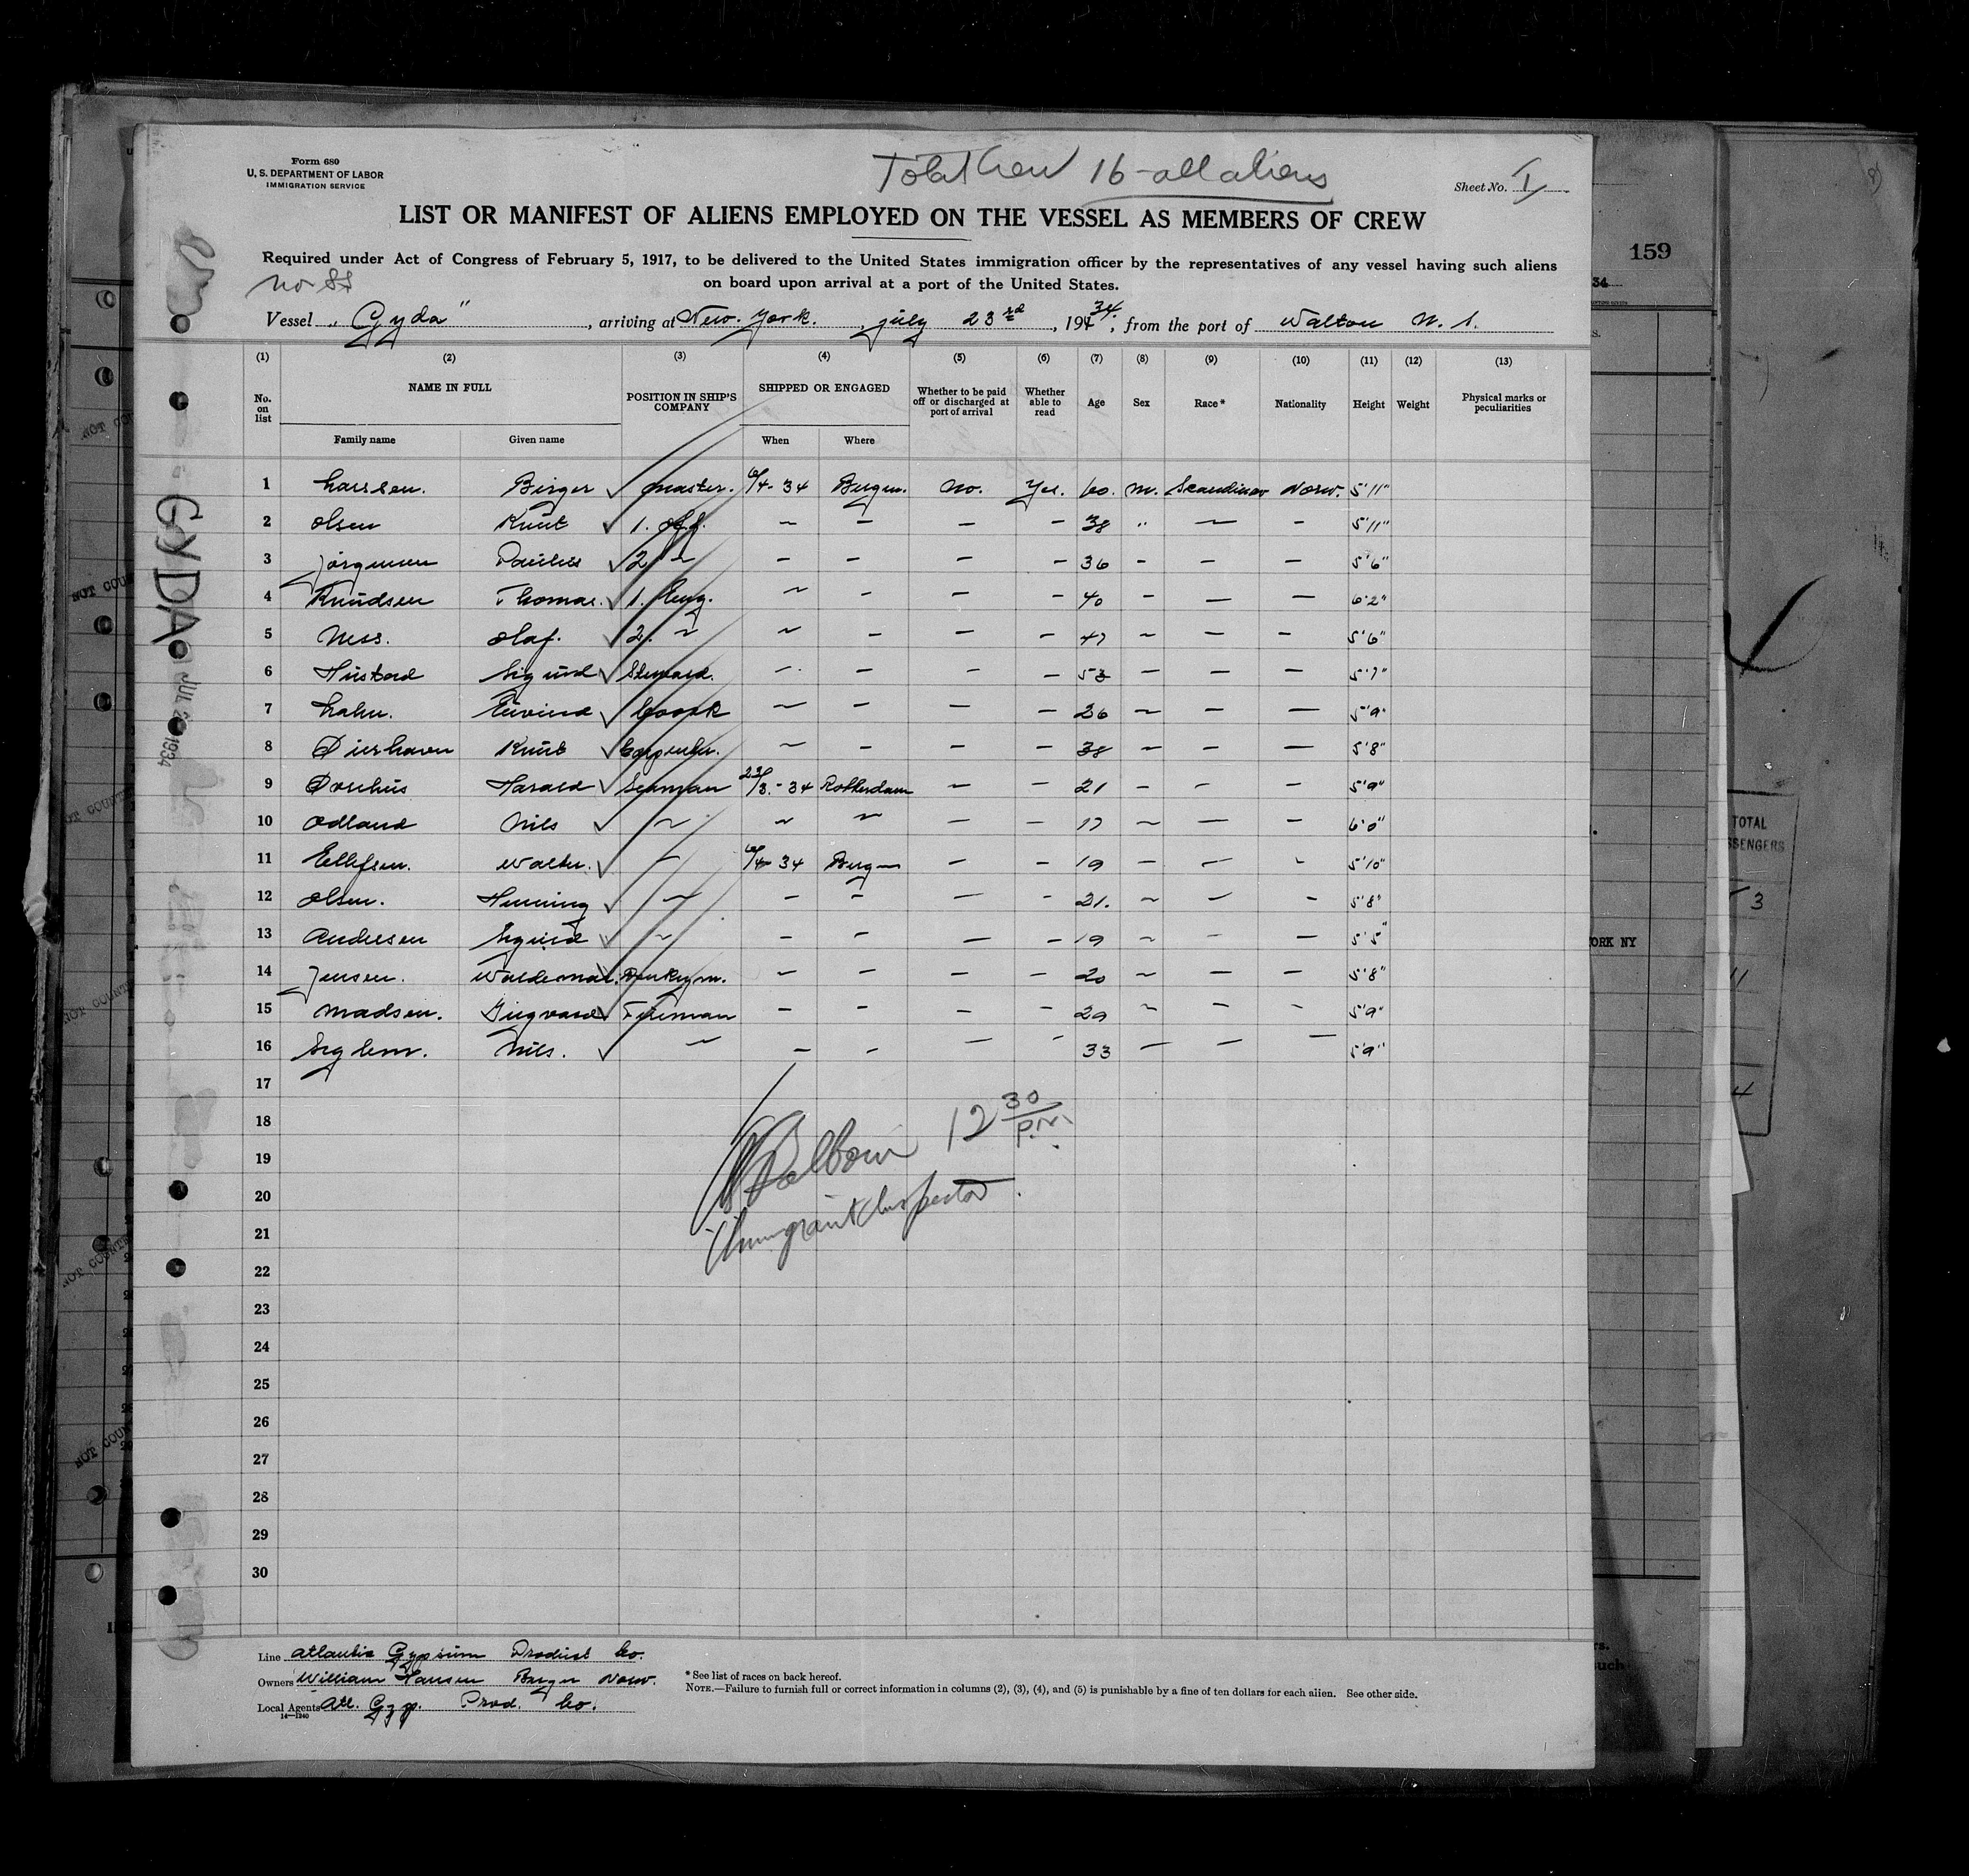 Form 680
U. S. DEPARTMENT OF LABOR
IMMIGRATION SERVICE
Total Crew 16 - all aliens
Sheet No. I
LIST OR MANIFEST OF ALIENS EMPLOYED ON THE VESSEL AS MEMBERS OF CREW
Required under Act of Congress of February 5, 1917, to be delivered to the United States immigration officer by the representatives of any vessel having such aliens
on board upon arrival at a port of the United States.
Vessel "Gyda", arriving at New. York. , july 23rd, 19434, from the port of Walton N. S.
(1) (2) (3) (4) (5) (6) (7) (8) (9) (10) (11) (12) (13)
No. on list NAME IN FULL POSITION IN SHIP'S COMPANY SHIPPED OR ENGAGED Whether to be paid off or discharged at port of arrival Whether able to read Age Sex Race* Nationality Height Weight Physical marks or peculiarities
Family name Given name When Where
1 Larssen. Birger ✓ master. 6/4-34 Bergen. No. Yes. 60. M. Scandinav Norw. 5'11"
2 Olsen Knut ✓ 1. off. ~ – – – 38 " – – 5'11"
3 Jörgensen ✓ 2 ~ – – – – 36 – – – 5'6"
4 Knudsen Thomas. ✓ 1. Eng. ~ – – – 40 – – – 6'2"
5 Ness. Olaf. ✓ 2. ~ ~ – – – 47 ~ – – 5'6"
6 Sigurd ✓ Steward. – – – – 53 – – – 5'7"
7 Eivind ✓ Coock ~ – – – 26 ~ – – 5'9"
8 Knut ✓ Carpenter. ~ – – – 38 ~ – – 5'8"
9 Harald ✓ Seaman 23/3.-34 Rotterdam – – 21 – – – 5'9"
10 Odland Nils ✓ ~ ~ ~ – – 17 ~ – – 6'0"
11 Ellefsen. Walter. ✓ – 6/4-34 Bergen – – 19 – – – 5'10"
12 Olsen. Henning ✓ ~ – – – – 21. ~ – – 5'8"
13 Andersen Sigurd ✓ ~ – – – – 19 ~ – – 5'5"
14 Jensen. Waldemar. ✓ Donkeym. ~ – – – 20 ~ – – 5'8"
15 Madsen. Ingvard ✓ Fireman – – – – 29 ~ – – 5'9"
16 Nils. ✓ ~ – – – – 33 – – – 5'9"
17
18
19
20
21
22
23
24
25
26
27
28
29
30
12 30 P.M.
Immigrant Inspector.
Line Atlantic Gypsum Product Co.
Owners William Hansen Bergen Norw.
Local Agents Atl. Gyp. Prod. Co.
14—1240
* See list of races on back hereof.
NOTE.—Failure to furnish full or correct information in columns (2), (3), (4), and (5) is punishable by a fine of ten dollars for each alien. See other side.
GYDA
JUL 2 1934
159
34
TOTAL
SSENGERS
3
11
4
ORK NY
NOT COUNT